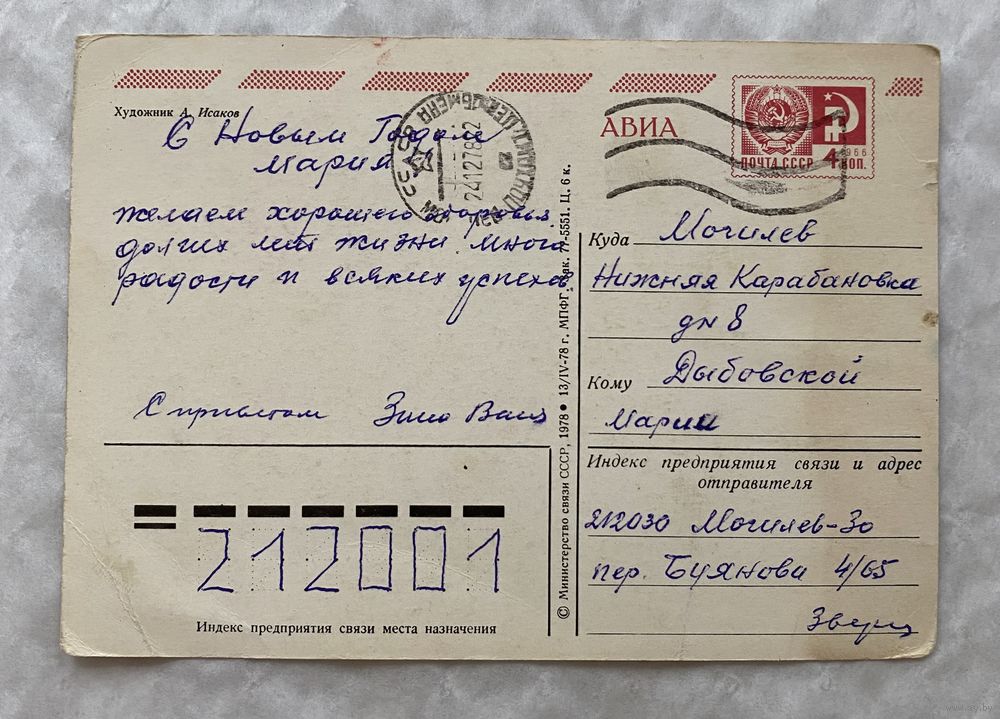 Художник А. Исаков
С Новым Годом
Мария
желаем хорошего здоровья
долгих лет жизни много
радости и всяких успехов
С приветом
АВИА
ПОЧТА СССР
4 КОП.
1966
24127822
Куда Могилев
Нижняя Карабановка
дн 8
Кому Дыбовской
Марии
Индекс предприятия связи и адрес
отправителя
212030 Могилев-30
пер. Буянова 4/65
© Министерство связи СССР, 1978 • 13/IV-78 г. МПФГ. Зак. 77-5551. Ц. 6 к.
212001
Индекс предприятия связи места назначения
www.ay.by